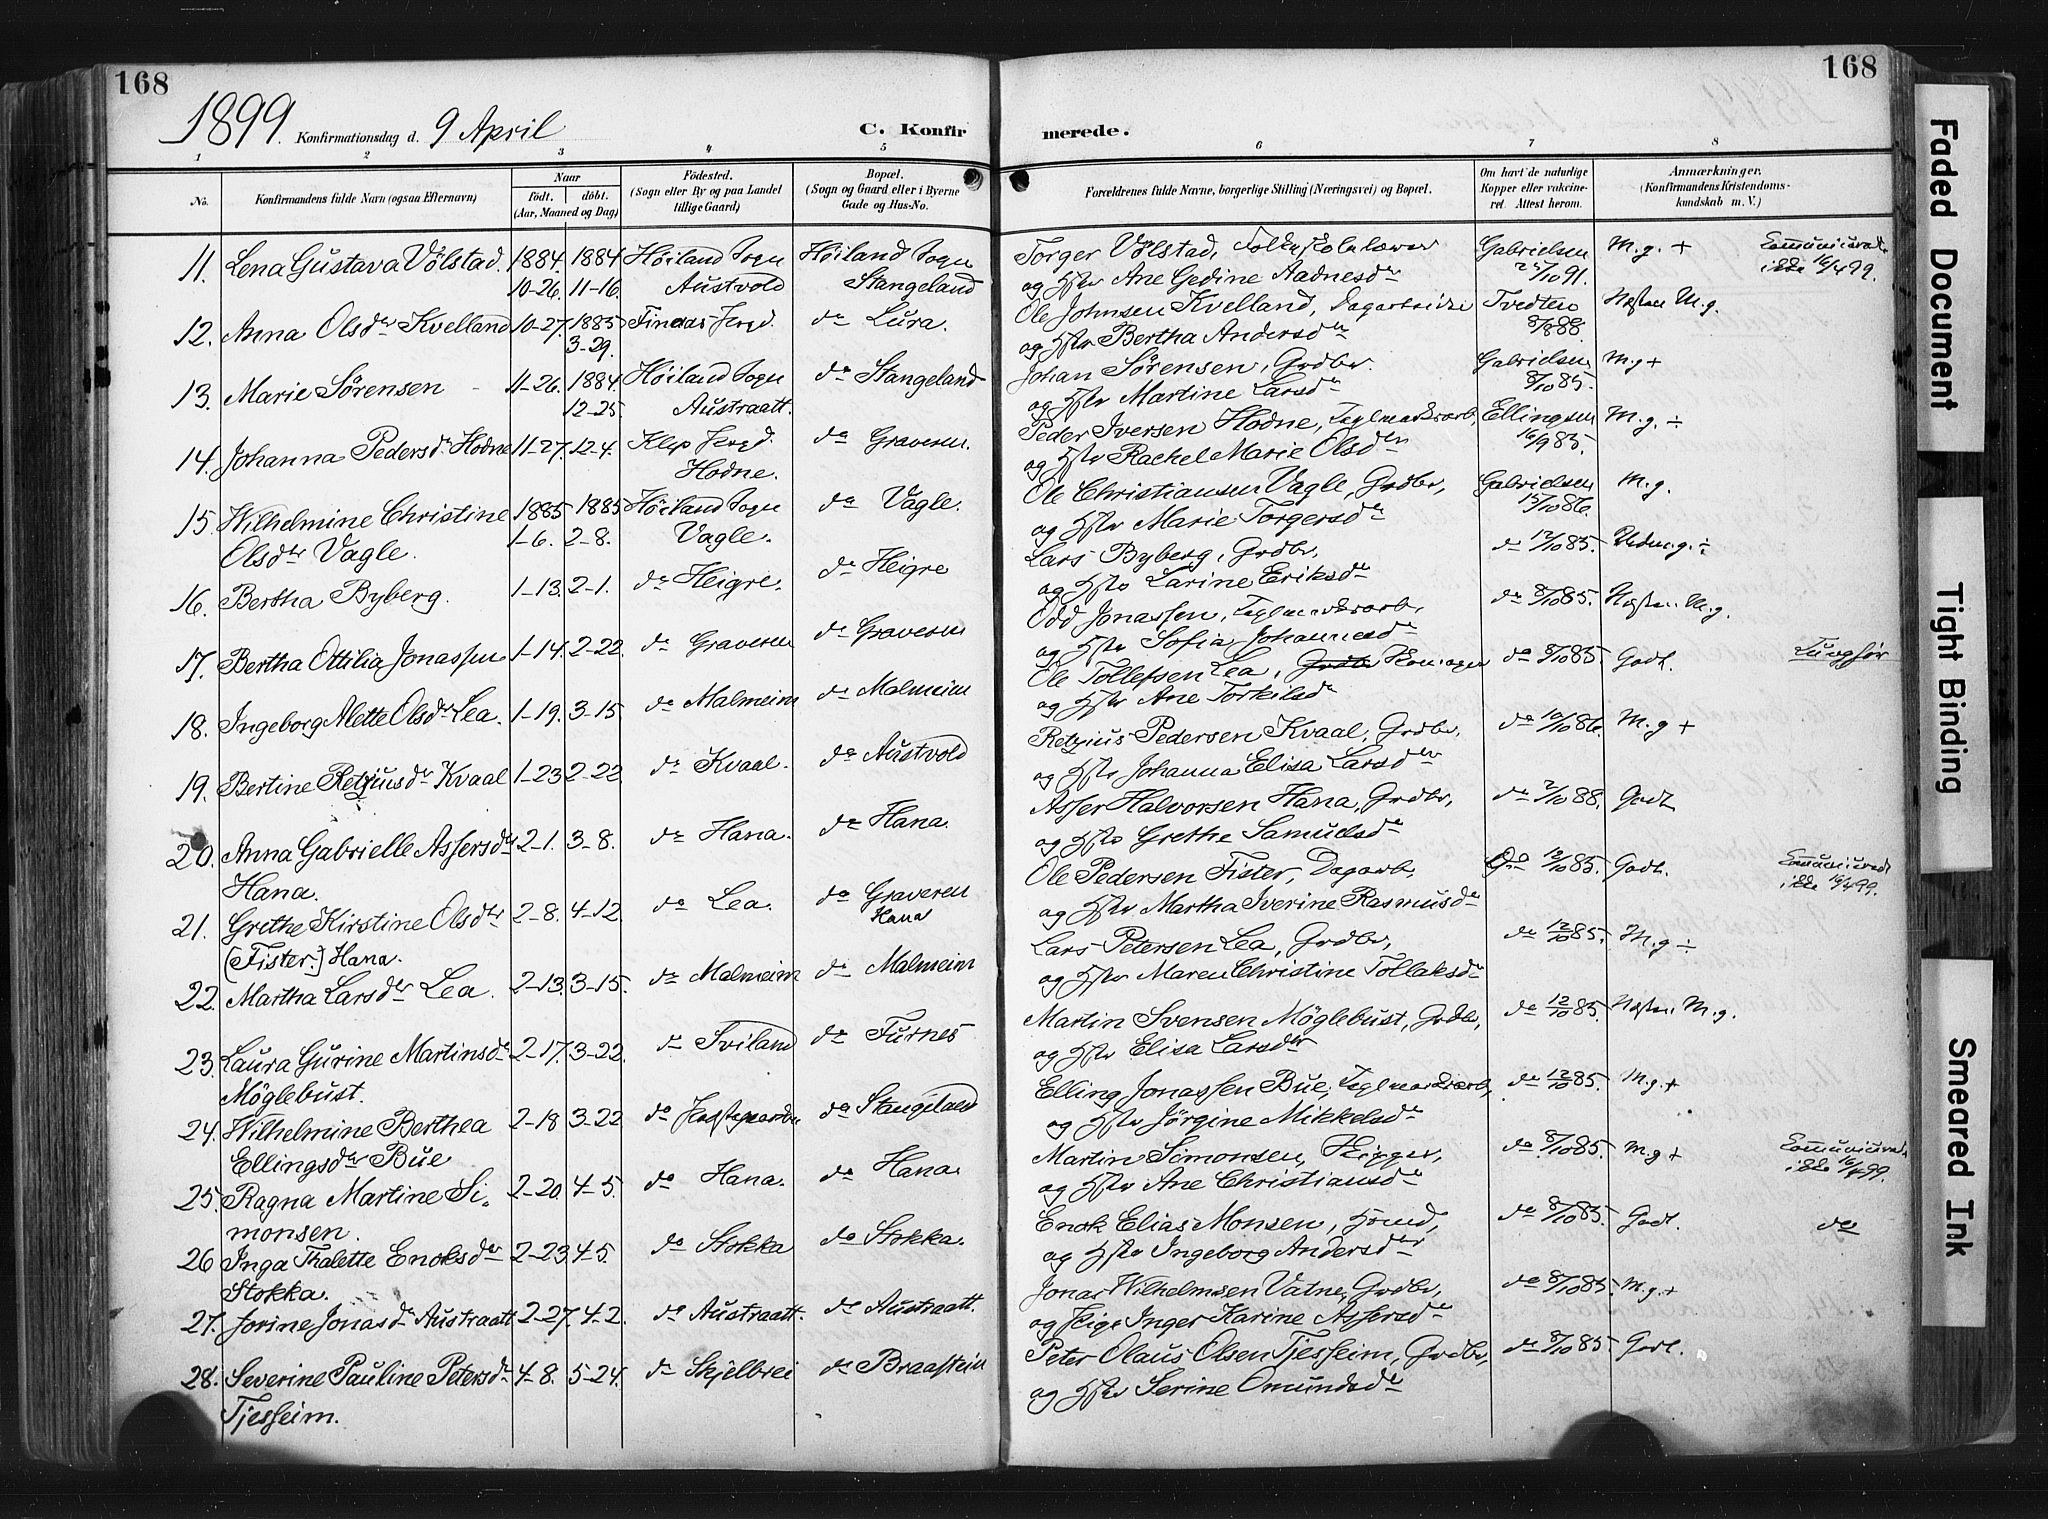 168
168
1899. Konfirmationsdag d. 9 April
C. Konfirmerede.
1 2 3 4 5 6 7 8
No. Konfirmandens fulde Navn (ogsaa Efternavn) Naar født. døbt. (Aar, Maaned og Dag) Fødested. (Sogn eller By og paa Landet tillige Gaard) Bopæl. (Sogn og Gaard eller i Byerne Gade og Hus-No. Forældrenes fulde Navne, borgerlige Stilling (Næringsvei) og Bopæl. Om havt de naturlige Kopper eller vakcineret. Attest herom. Anmærkninger. (Konfirmandens Kristendomskundskab m. V.)
11. Lena Gustava Völstad. 1884. 1884 Höiland Sogn Höiland Sogn Torger Völstad, Folkeskolelærer Gabrielsen M.g. +
10-26. 11-16. Austvold Stangeland og Hstr Ane Gedine Aadnesdr /10 91. ikke 16/4 99.
12. Anna Olsdr Kvelland 10-27. 1885 3-29. Finnas Prgd. do Lura. Ole Johnsen Kvelland, Dagarbeider Tvedten 8/8 88. Næsten M.g.
og Hstr Bertha Andersdr
13. Marie Sörensen 11-26. 1884 Höiland Sogn do Stangeland Johan Sörensen, Grdbr. Gabrielsen 8/10 85. M.g +
12-25. Austraatt. og Hstr Martine Larsdr
14. Johanna Pedersdr Hodne 11-27. 12-4. Klep Prgd. do Graveren. Peder Iversen Hodne, Teglværksarb, Ellingsen 16/9 85. M.g. ÷
Hodne. og Hstr Rachel Marie Olsdr
15. Wilhelmine Christine 1885 1885 Höiland Sogn do Vagle. Ole Christiansen Vagle, Grdbr, Gabrielsen 15/10 86. M.g.
Olsdtr Vagle. 1-6. 2-8. Vagle. og Hstr Marie Torgersdr
16. Bertha Byberg. 1-13. 2-1. do Heigre. do Heigre Lars Byberg, Grdbr, do 12/10 85. Udm.g. ÷
og Hstr Larine Eriksdr
17. Bertha Ottilia Jonassen 1-14. 2-22. do Graveren do Graveren Odd Jonassen, Teglværksarb, do 8/10 85. Næsten M.g.
og Hstr Sofia Johannesdr
18. Ingeborg Alette Olsdr Lea. 1-19. 3-15. do Malmeim do Malmeim Ole Tollefsen Lea, do 8/10 85. Godt. Tungfør
og Hstr Ane Torkilsdr
19. Bertine Retziusdr Kvaal 1-23. 2-22. do Kvaal. do Austvold Retzius Pedersen Kvaal, Grdbr, do /10 86. M.g +
og Hstr Johanna Elisa Larsdtr
20. Anna Gabrielle Assersdr 2-1. 3-8. do Hana. do Hana. Asser Halvorsen Hana, Grdbr, do 2/10 88. Godt
Hana. og Hstr Grethe Samuelsdr
21. Grethe Kirstine Olsdtr 2-8. 4-12. do Lea. do Graveren Hana Ole Pedersen Fister, Dagarb, Do 12/10 85. Godt. ikke 16/4 99.
(Fister.) Hana. og Hstr Martha Iverine Rasmusdr
22. Martha Larsdr Lea. 2-13. 3-15. do Malmeim do Malmeim Lars Petersen Lea, Grdbr, do 12/10 85. M.g ÷
og Hstr Maren Christine Tollaksdr
23. Laura Gurine Martinsdr 2-17. 3-22. do Sviland do Furnes Martin Svensen Möglebust, Grdbr, do 12/10 85. Næsten M.g.
Möglebust. og Hstr Elisa Larsdtr
24. Wilhelmine Berthea 2-18 3-22 do Præstegaarden do Stangeland Elling Jonassen Bue, Teglværksarb, do 12/10 85. M.g. +
Ellingsdtr Bue og Hstr Jørgine Mikkelsdr
25. Ragna Martine Si- 2-20. 4-5. do Hana. do Hana. Martin Simonsen, do 8/10 85. M.g +
monsen. og Hstr Ane Christiansdr ikke 16/4 99.
26 Inga Thalette Enoksdr 2-23. 4-5. do Stokka do Stokka. Enok Elias Monsen, do 8/10 85. Godt. do
Stokka. og Hstr Ingeborg Andersdr
27. Jorine Jonasdr Austraatt. 2-27. 4-2. do Austraatt. do Austraatt. Jonas Wilhelmsen Vatne, Grdbr, do 8/10 85. M.g. +
og Pige Inger Karine Assersdr
28. Severine Pauline Petersdr 4-8. 5-24. do Skjelbrei do Braastein Peter Olaus Olsen Tjessheim, Grdbr, do 8/10 85 Godt.
Tjessheim. og Hstr Serine Omundsdr
Faded Document
Tight Binding
Smeared Ink